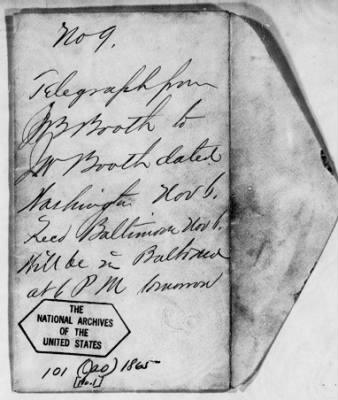 No 9.
Telegraph from
JB Booth to
JW Booth dated
Washington Nov 6.
Recd Baltimore Nov 6.
Will be in Baltimore
at 6 PM tomorrow
THE
NATIONAL ARCHIVES
OF THE
UNITED STATES
101 (JAO) 1865
[No.1]